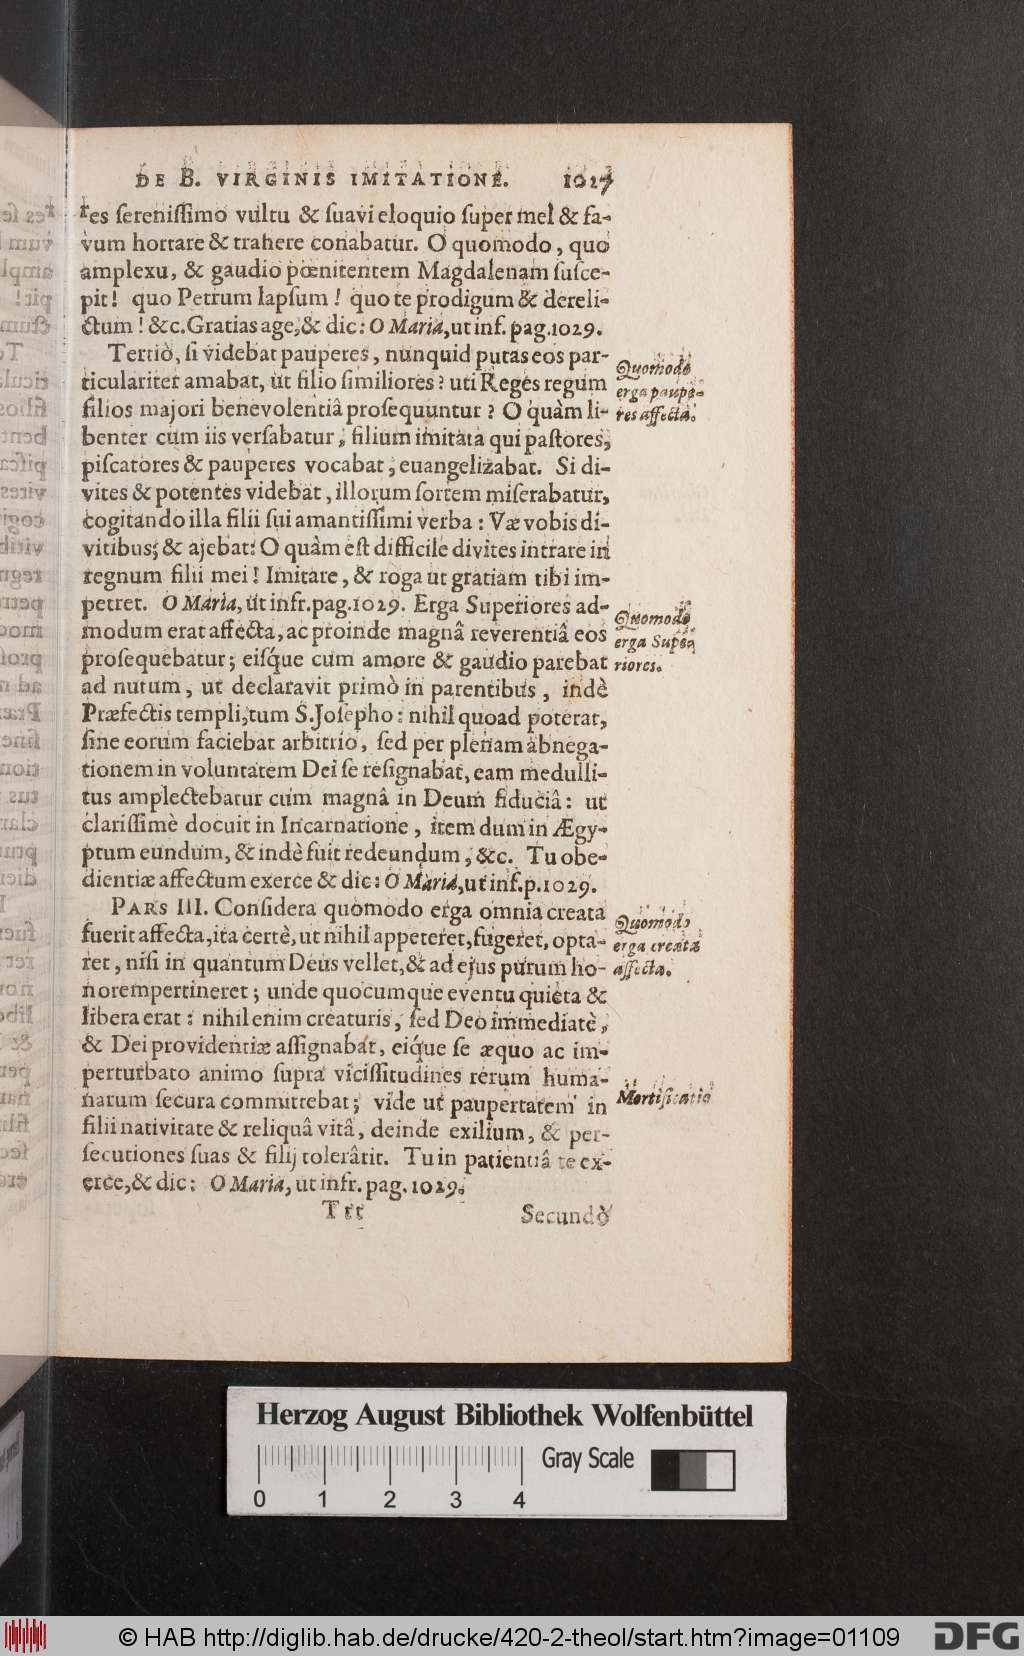 DE B. VIRGINIS IMITATIONE. 1027
res ſereniſſimo vultu & ſuavi eloquio ſuper mel & fa-
vum hortare & trahere conabatur. O quomodo, quo
amplexu, & gaudio pœnitentem Magdalenam ſuſce-
pit! quo Petrum lapſum! quo te prodigum & dereli-
ctum! &c. Gratias age, & dic: O Maria, ut inf. pag. 1029.
Tertiò, ſi videbat pauperes, nunquid putas eos par-
ticulariter amabat, ut filio ſimiliores? uti Reges regum
filios majori benevolentiâ proſequuntur? O quàm li-
benter cum iis verſabatur, filium imitata qui paſtores,
piſcatores & pauperes vocabat, euangelizabat. Si di-
vites & potentes videbat, illorum ſortem miſerabatur,
cogitando illa filii ſui amantiſſimi verba: Væ vobis di-
vitibus; & ajebat: O quàm eſt difficile divites intrare in
regnum filii mei! Imitare, & roga ut gratiam tibi im-
petret. O Maria, ut infr. pag. 1029. Erga Superiores ad-
modum erat affecta, ac proinde magnâ reverentiâ eos
proſequebatur; eiſq́ue cum amore & gaudio parebat
ad nutum, ut declaravit primò in parentibus, indè
Præfectis templi, tum S. Joſepho: nihil quoad poterat,
ſine eorum faciebat arbitrio, ſed per plenam abnega-
tionem in voluntatem Dei ſe reſignabat, eam medulli-
tus amplectebatur cum magnâ in Deum fiduciâ: ut
clariſſimè docuit in Incarnatione, item dum in Ægy-
ptum eundum, & indè fuit redeundum, &c. Tu obe-
dientiæ affectum exerce & dic: O Maria, ut inf. p. 1029.
PARS III. Conſidera quomodo erga omnia creata
fuerit affecta, ita certè, ut nihil appeteret, fugeret, opta-
ret, niſi in quantum Deus vellet, & ad ejus purum ho-
norem pertineret; unde quocumque eventu quieta &
libera erat: nihil enim creaturis, ſed Deo immediatè,
& Dei providentiæ aſſignabat, eiq́ue ſe æquo ac im-
perturbato animo ſupra viciſſitudines rerum huma-
narum ſecura committebat; vide ut paupertatem in
filii nativitate & reliquâ vitâ, deinde exilium, & per-
ſecutiones ſuas & filij tolerârit. Tu in patientiâ te ex-
erce, & dic: O Maria, ut infr. pag. 1029.
Ttt Secundò
Quomodo
erga paupe-
res affecta.
Quomodo
erga Supe-
riores.
Quomodo
erga creata
affecta.
Mortificatio
Herzog August Bibliothek Wolfenbüttel
Gray Scale
0 1 2 3 4
© HAB http://diglib.hab.de/drucke/420-2-theol/start.htm?image=01109
DFG